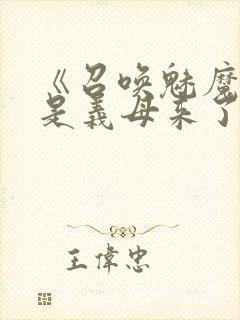 《召喚魅魔
是義母來了
王偉忠